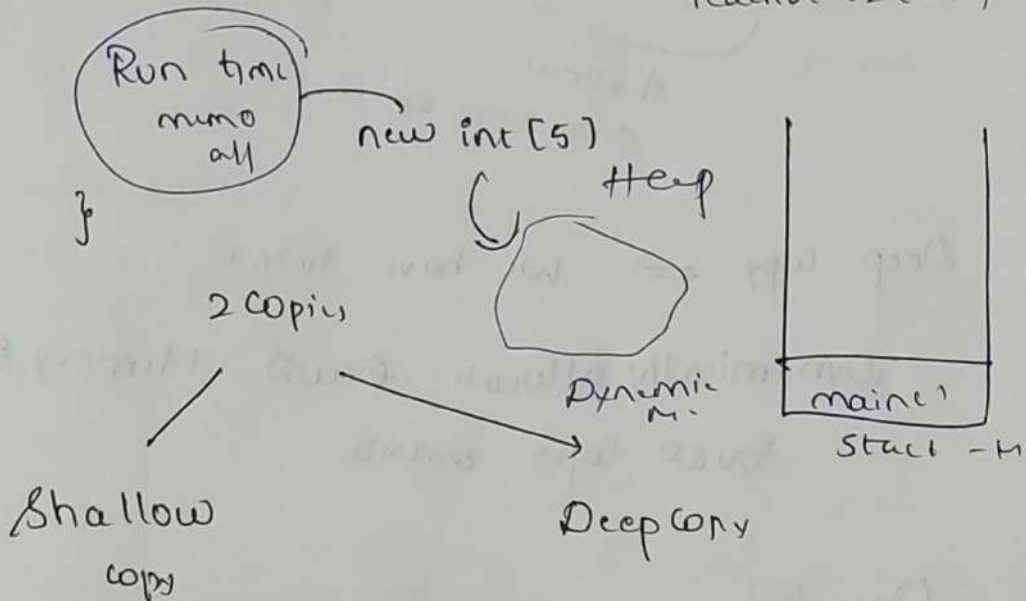 Run time
memo
all
new int [5]
}
Heap
2 Copies
Dynamic
M.
main()
Stack - M
Shallow
copy
Deep Copy